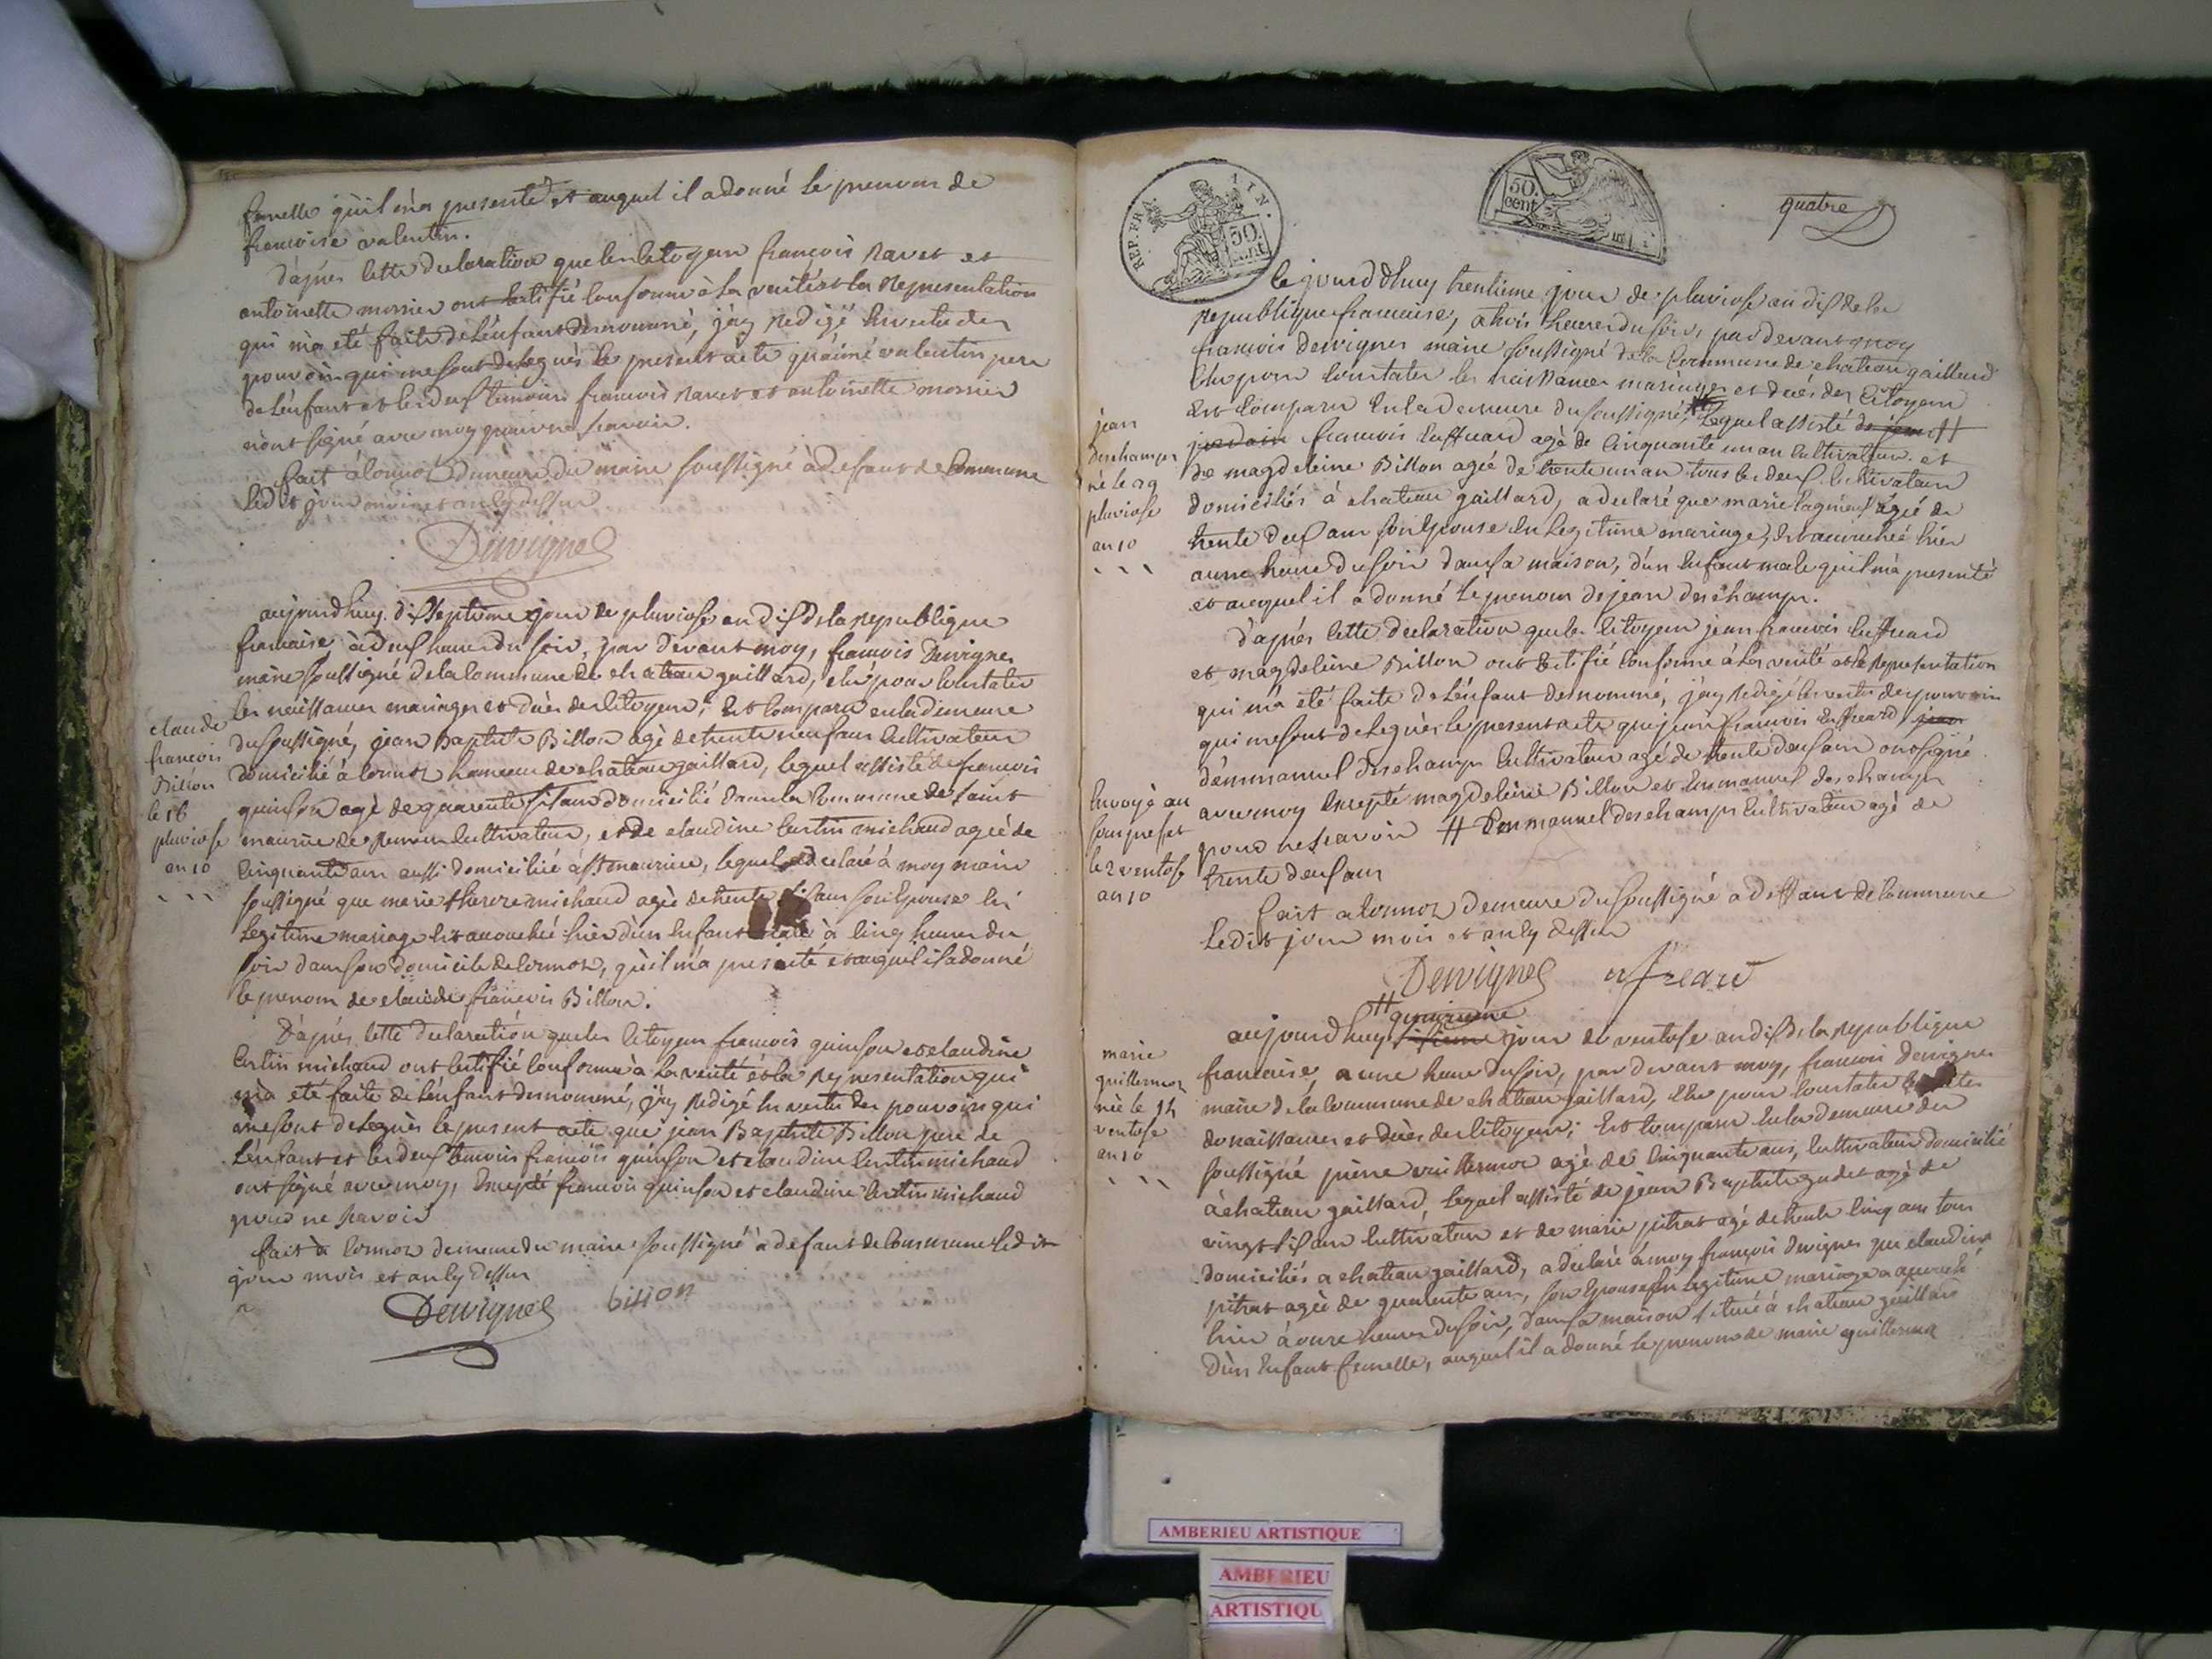 femelle qu'il m'a presenté et auquel il a donné le prenom de
francoise valentin.
d'apres cette declaration que les citoyens francois ravet et
antoinette mornier ont certifié conforme à la verité et la representation
qui m'a eté faite de l'enfant denommé, j'ay redigé en vertu des
pouvoirs qui me sont delegués le present acte qu'aimé valentin pere
de l'enfant et les deux temoins francois ravet et antoinette mornier
n'ont signé avec moy pour ne scavoir.
fait à cormoz demeure du maire soussigné à defaut de commune
ledit jour mois et an cy dessus
Dewignes
claude
francois
Billon
le 16
pluviose
an 10
aujourdhuy dixseptieme jour de pluviose an dix de la republique
francaise à deux heures du soir, par devant moy, francois Dewignes
maire soussigné de la commune de chateau gaillard, elu pour constater
les naissances mariages et décès des citoyens, est comparu en la demeure
du soussigné, jean Baptiste Billon agé de trente neuf ans cultivateur
domicilié à cormoz hameau de chateau gaillard, lequel assisté de francois
quinson agé de quarente six ans domicilié dans la commune de saint
maurice de remens cultivateur, et de claudine curtin michaud agée de
cinquante ans aussi domiciliée à st maurice, lequel a declaré à moy maire
soussigné que marie therese michaud agée de trente six ans son epouse en
legitime mariage est accouchée hier d'un enfant male à cinq heures du
soir dans son domicile de cormoz, qu'il m'a presenté et auquel il a donné
le prenom de claude francois Billon.
D'apres cette declaration que les citoyens francois quinson et claudine
curtin michaud ont certifié conforme à la verité et la representation qui
m'a eté faite de l'enfant denommé, j'ay redigé en vertu des pouvoirs qui
me sont delegués le present acte que jean Baptiste Billon pere de
l'enfant et les deux temoins francois quinson et claudine curtin michaud
ont signé avec moy, excepté francois quinson et claudine curtin michaud
pour ne savoir
fait à cormoz demeure du maire soussigné à defaut de commune ledit
jour mois et an cy dessus
Dewignes billon
REP. FRA. AIN.
50. cent
50. cent
quatre
jean
deschamps
né le 29
pluviose
an 10
Cejourdhuy trentieme jour de pluviose an dix de la
republique francaise, à trois heures du soir, par devant moy
francois dewignes maire soussigné de la commune de chateau gaillard
elu pour constater les naissances mariages et décès des citoyens
est comparu en la demeure du soussigné, lequel assisté de jean #
francois enffreard agé de cinquante un an cultivateur et
de magdeleine Billon agée de trente un an tous les deux cultivateurs
domiciliés à chateau gaillard, a declaré que marie agée de
trente deux ans son epouse en legitime mariage, est accouchée hier
a une heure du soir dans sa maison, d'un enfant male qu'il m'a presenté
et auquel il a donné le prenom de jean deschamps.
d'après cette declaration que les citoyens jean francois enffreard
et magdeleine Billon ont certifié conforme à la verité et la representation
qui m'a eté faite de l'enfant denommé, j'ay redigé en vertu des pouvoirs
qui me sont delegués le present acte que jean francois enffreard jean
d'emmanuel deschamps cultivateur agé de trente deux ans ont signé
avec moy excepté magdeleine Billon et emmanuel deschamps
pour ne scavoir # Emmanuel deschamps cultivateur agé de
trente deux ans
Envoyé au
souprefet
le 2 ventose
an 10
fait a cormoz demeure du soussigné a deffaut de commune
ledit jour mois et an cy dessus
Dewignes
marie
guillermoz
née le 14
ventose
an 10
# quinzieme
aujourdhuy jour de ventose an dix de la republique
francaise, a une heure du soir, par devant moy, francois dewignes
maire de la commune de chateau gaillard, elu pour constater les actes
de naissances et décès des citoyens; est comparu en la demeure du
soussigné pierre guillermoz agé de cinquante ans, cultivateur domicilié
à chateau gaillard, lequel assisté de jean Baptiste agé de
vingt six ans cultivateur et de marie pitrat agé de trente cinq ans tous
domiciliés a chateau gaillard, a declaré à moy françois dewignes que claudine
pitrat agée de quarente ans, son epouse en legitime mariage a accouché
hier à onze heures du soir, dans sa maison située à chateau gaillard
d'un enfant femelle, auquel il a donné le prenom de marie guillermoz
AMBERIEU ARTISTIQUE
AMBERIEU
ARTISTIQU